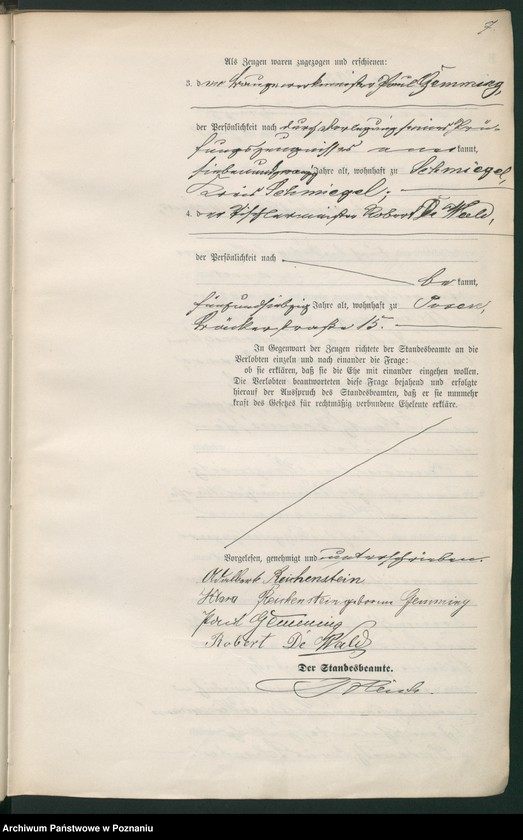 7.
Als Zeugen waren zugezogen und erschienen:
3. der Baugewerksmeister Paul Gemming,
der Persönlichkeit nach durch Vorlegung seines Prü-
fungszeugnisses anerkannt,
siebenundzwanzig Jahre alt, wohnhaft zu Schmiegel,
Kreis Schmiegel;
4. der Tischlermeister Robert De Wald,
der Persönlichkeit nach
bekannt,
fünfundsiebzig Jahre alt, wohnhaft zu Posen,
Bäckerstraße 15.
In Gegenwart der Zeugen richtete der Standesbeamte an die
Verlobten einzeln und nach einander die Frage:
ob sie erklären, daß sie die Ehe mit einander eingehen wollen.
Die Verlobten beantworteten diese Frage bejahend und erfolgte
hierauf der Ausspruch des Standesbeamten, daß er sie nunmehr
kraft des Gesetzes für rechtmäßig verbundene Eheleute erkläre.
Vorgelesen, genehmigt und unterschrieben.
Adalbert Reichenstein
Klara Reichenstein geborene Gemming
Paul Gemming
Robert De Wald
Der Standesbeamte.
Archiwum Państwowe w Poznaniu